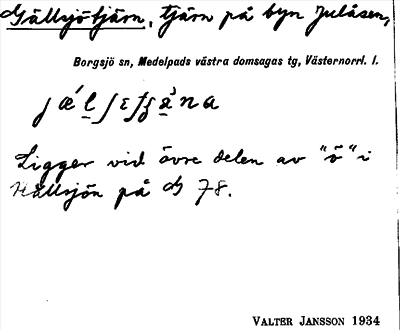 Gällsjötjärn, tjärn på byn Julåsen,
Borgsjö sn, Medelpads västra domsagas tg, Västernorrl. l.
Ligger vid övre delen av "ö" i
Hällsjön på 78.
VALTER JANSSON 1934